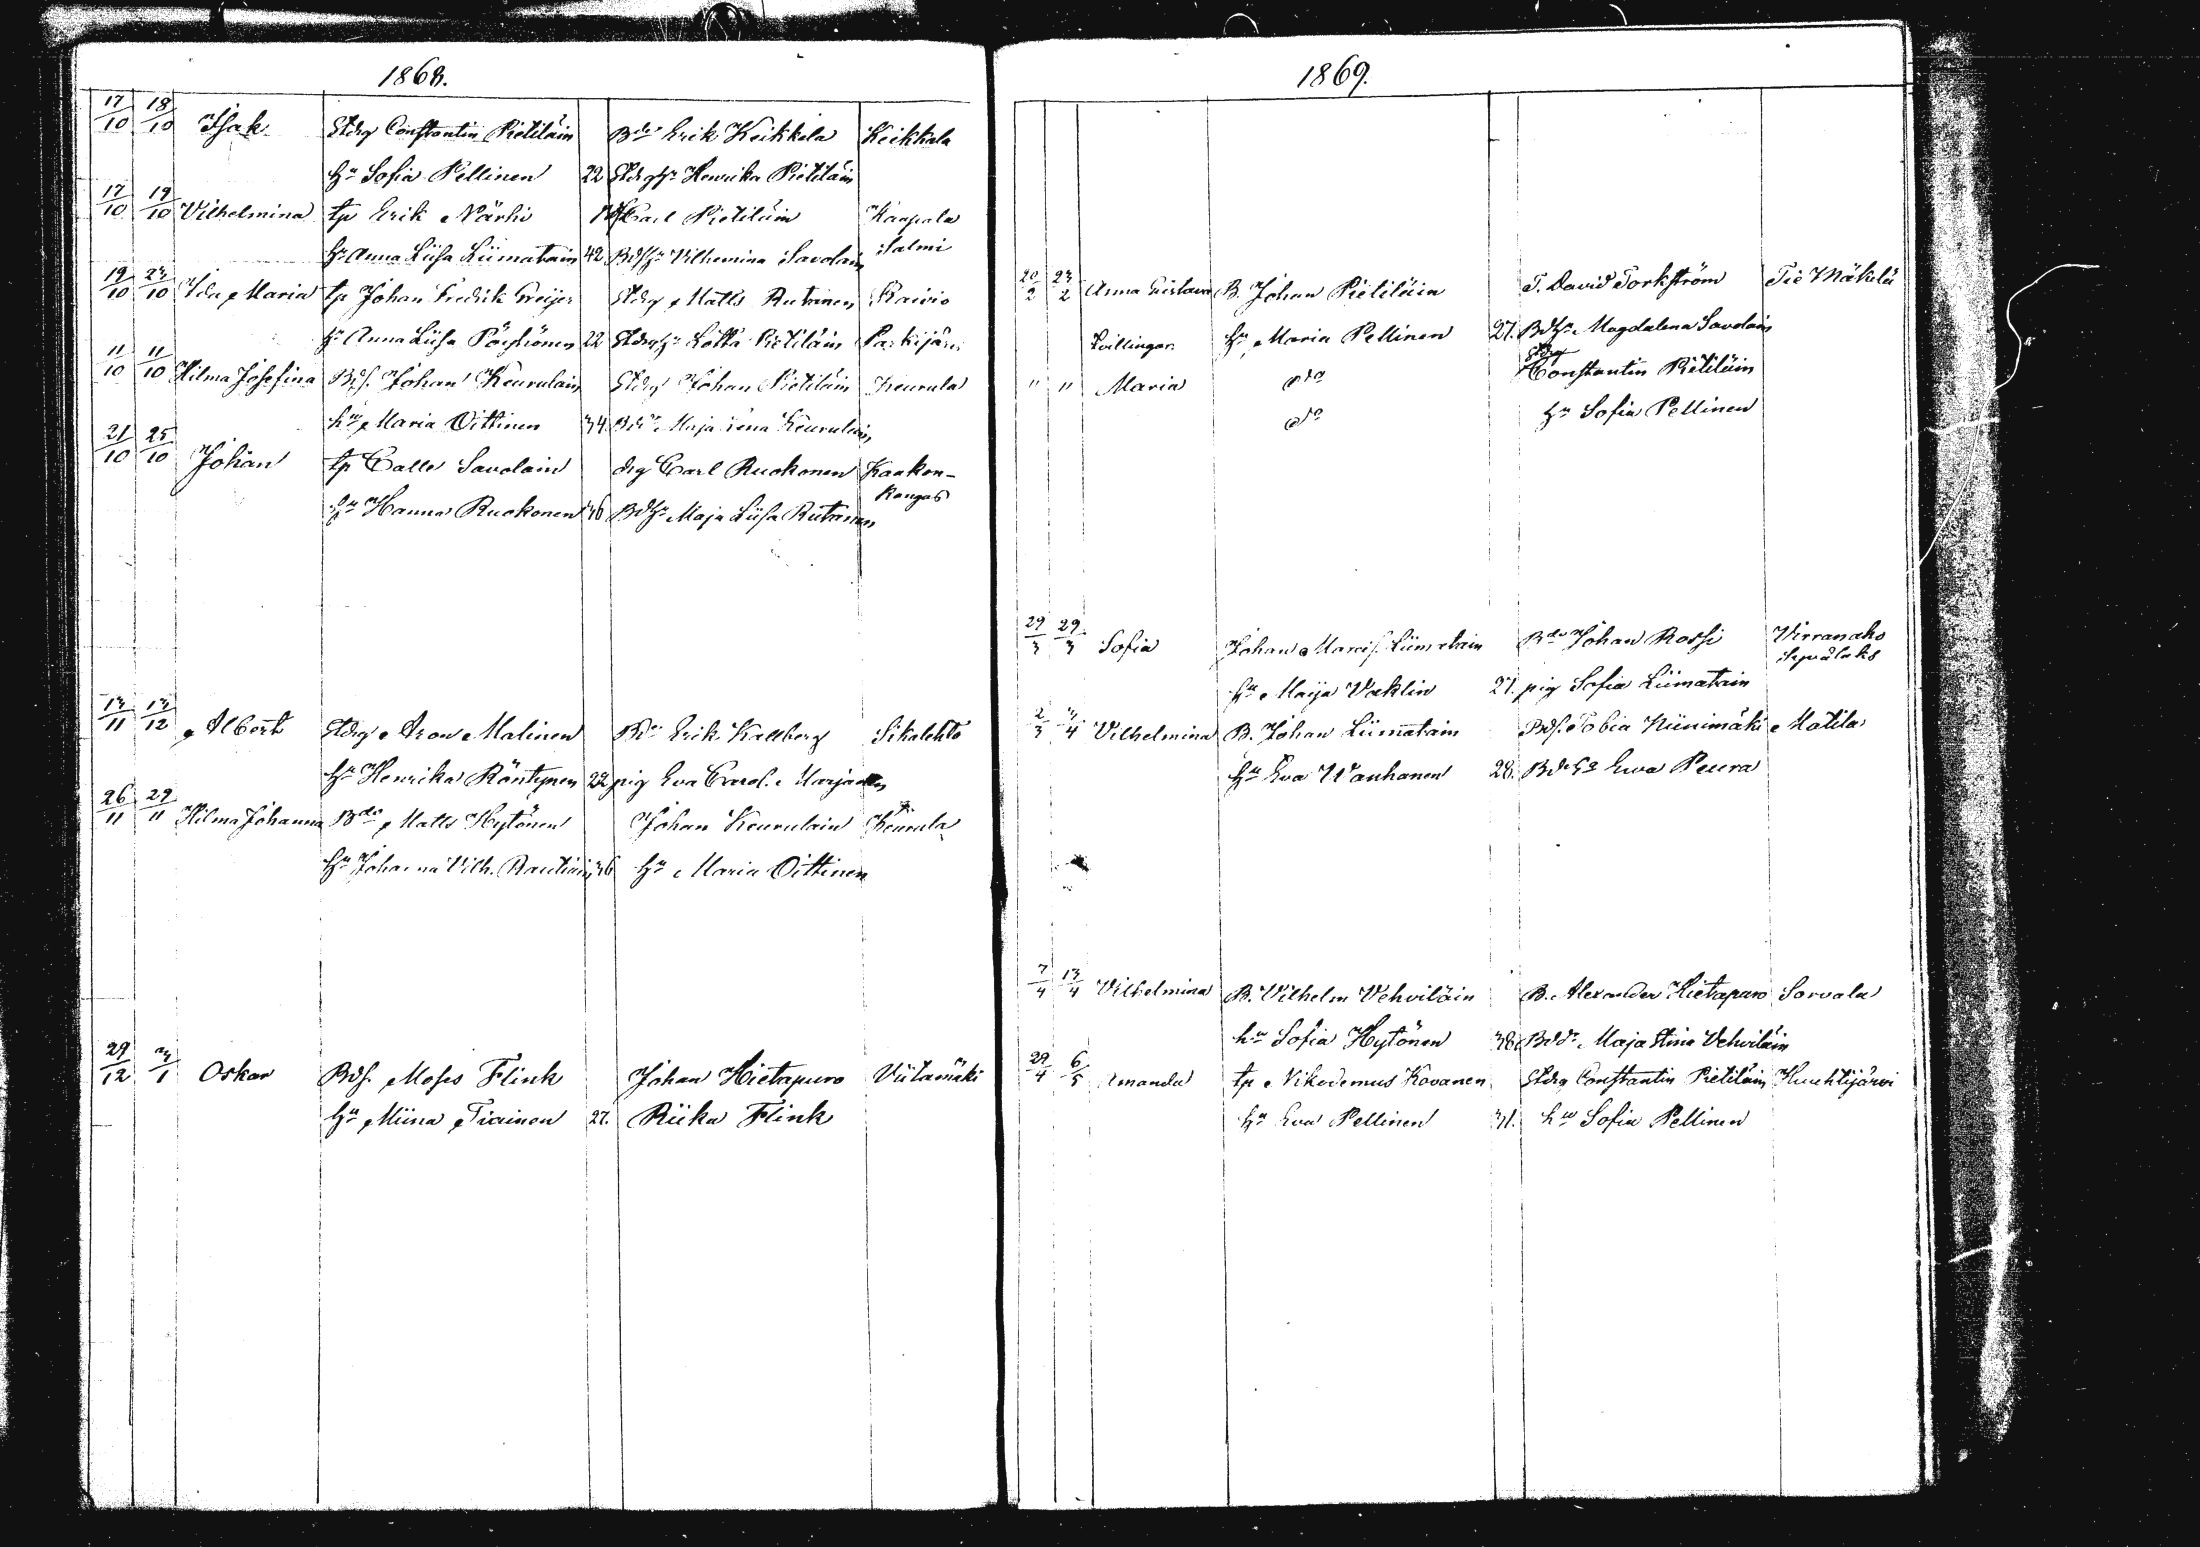 1868.
17/10 18/10 Isak Stdrg Constantin Pietiläin Bde Erik Keikkala Keikkala
hu Sofia Pellinen 22 Stdrg hu Henrika Pietiläin
17/10 19/10 Vilhelmina tp Erik Närhi Carl Pietiläin Kaapala
hu Anna Liisa Liimatain 42 Bdshu Vilhemina Savolain Salmi
19/10 23/10 Ida Maria tp Johan Fredrik Freijer Stdrg Matts Rutanen Raivio
hu Anna Liisa Pöyhönen 22 Stdrg hu Lotta Pietiläin
11/10 11/10 Hilma Josefina Bds. Johan Keurulain Stdrg Johan Pietiläin Keurula
hu Maria Oittinen 34 Maja Keurulain
21/10 25/10 Johan tp Calle Savolain drg Carl Ruokonen Kaakon-
kangas
hu Hanna Ruokonen 36 Bdhu Maja Liisa Rutanen
13/11 13/12 Albert Stdrg Aron Malinen Bde Erik Kallberg Sikalehto
hu Henrika Röntynen pig Eva Carol. Marjanen
26/11 29/11 Hilma Johanna Bde Matts Hytönen Johan Keurulain Keurula
hu Johanna Vilh. Rautiain 36 hu Maria Oittinen
29/12 3/1 Oskar Bds. Moses Flink Johan Hietapuro Viitamäki
hu Miina Tiainen 27. Riika Flink
1869.
20/2 23/2 Anna Gustava B. Johan Pietiläin T. David Torkström Tie Mäkelä
Tvillingar. hu Maria Pellinen 27. Bdhu Magdalena Savolain
Stdrg
" " Maria dto Constantin Pietiläin
dto hu Sofia Pellinen
29/3 29/3 Sofia Johan Marcis. Liimatain Bde Johan Rossi Virranaho
hu Maija Vacklin 27. pig Sofia Liimatain
2/3 3/4 Vilhelmina B. Johan Liimatain Bds. Tobia Niinimäki Matila
hu Eva Wanhanen 28. Bdehu Ewa Peura
7/4 13/4 Vilhelmina B. Vilhelm Vehviläin B. Alexander Hietapuro Sorvala
hu Sofia Hytönen 38. Bddr Maja Stina Vehviläin
29/4 6/5 Amanda tp Nikodemus Kovanen Stdrg Constantin Pietiläin Huuhtijärvi
hu Eva Pellinen 31. hu Sofia Pellinen